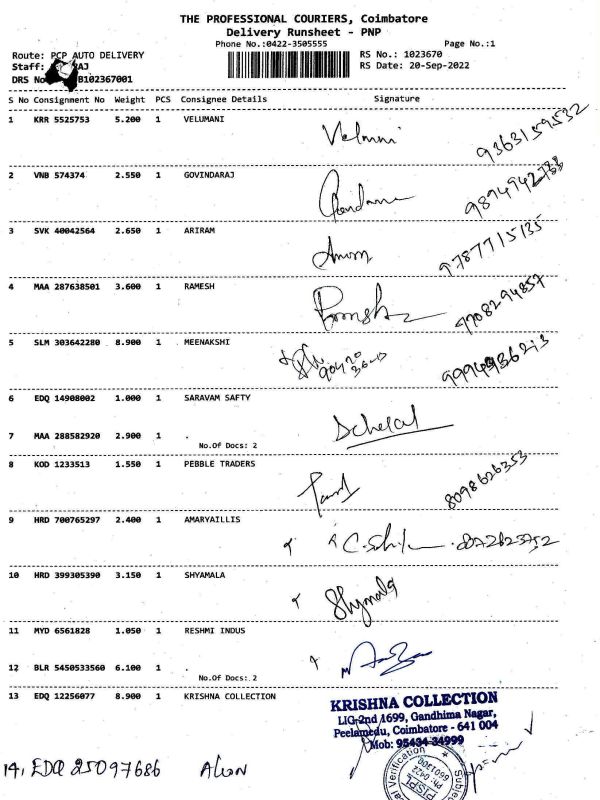 THE PROFESSIONAL COURIERS, Coimbatore
Delivery Runsheet - PNP
Phone No.:0422-3505555 Page No.:1
Route: PCP AUTO DELIVERY RS No.: 1023670
Staff: RAJ RS Date: 20-Sep-2022
DRS No B102367001
S No Consignment No Weight PCS Consignee Details Signature
1 KRR 5525753 5.200 1 VELUMANI 9363159532
2 VNB 574374 2.550 1 GOVINDARAJ 9894942733
3 SVK 40042564 2.650 1 ARIRAM 9787715135
4 MAA 287638501 3.600 1 RAMESH 9708294857
5 SLM 303642280 8.900 1 MEENAKSHI
6 EDQ 14908002 1.000 1 SARAVAM SAFTY
7 MAA 288582920 2.900 1 .
No.Of Docs: 2
8 KOD 1233513 1.550 1 PEBBLE TRADERS 8098626353
9 HRD 700765297 2.400 1 AMARYAILLIS
10 HRD 399305390 3.150 1 SHYAMALA Shymala
11 MYD 6561828 1.050 1 RESHMI INDUS
12 BLR 5450533560 6.100 1 .
No.Of Docs: 2
13 EDQ 12256077 8.900 1 KRISHNA COLLECTION
KRISHNA COLLECTION
LIG-2nd 1699, Gandhima Nagar,
Peelamedu, Coimbatore - 641 004
Mob: 95434 34999
14, EDQ 25097686